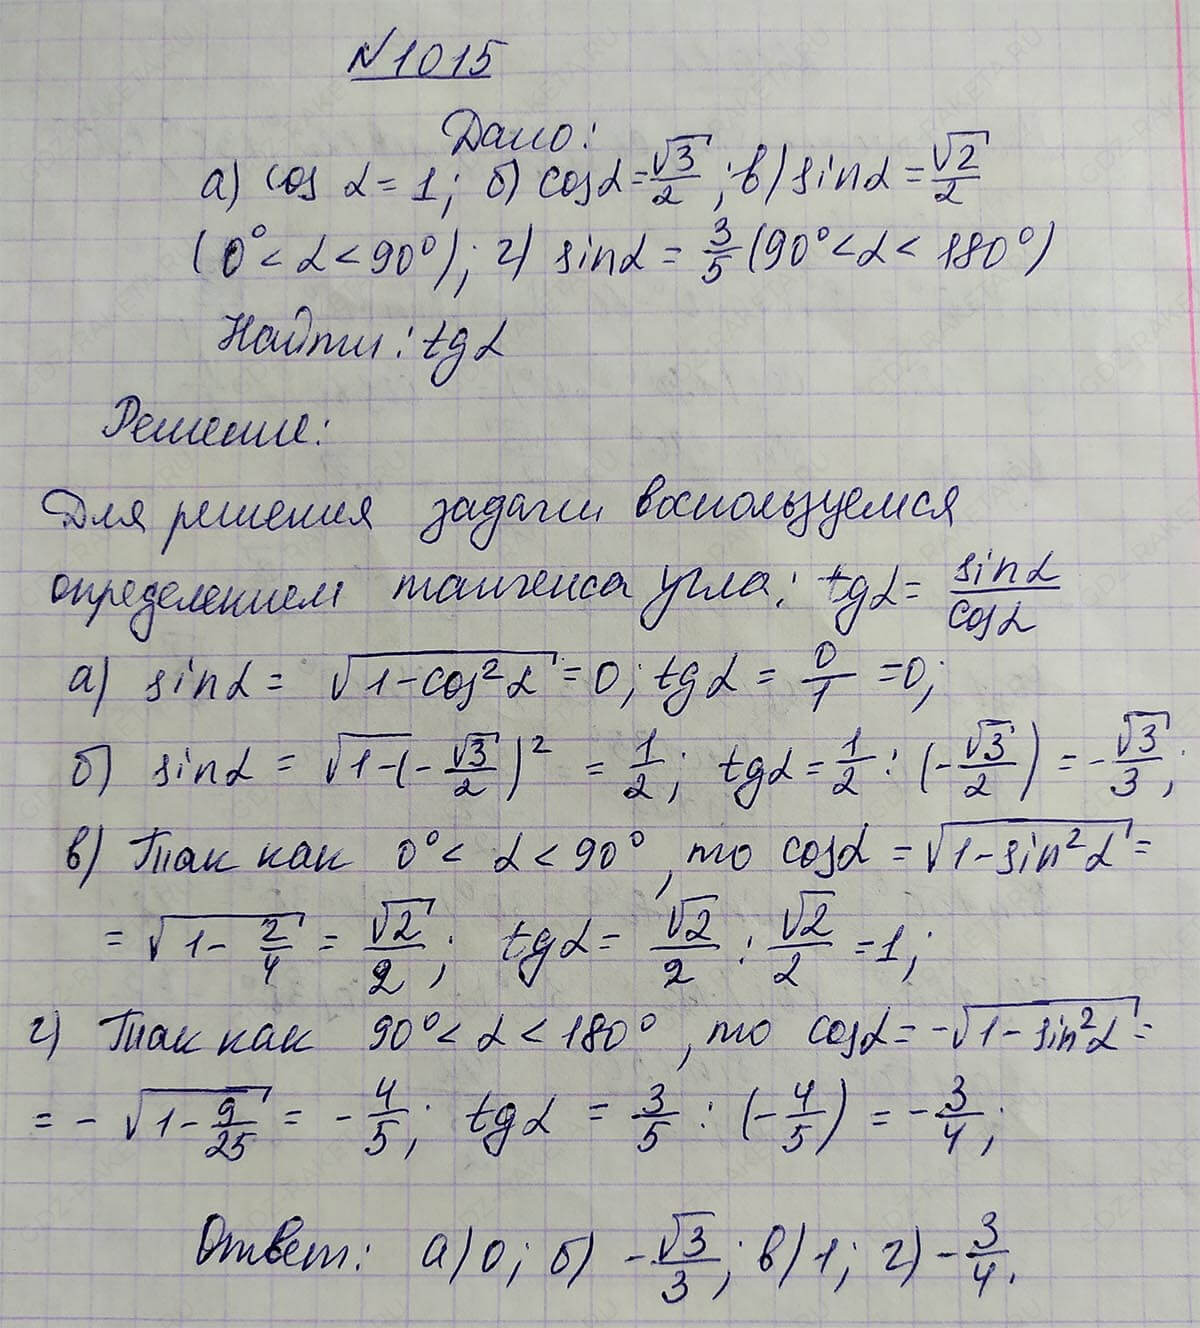 №1015
Дано:
а) cos α = 1; б) cosα = √3/2; в) sinα = √2/2
(0° < α < 90°); г) sinα = 3/5 (90° < α < 180°)
Найти: tgα
Решение:
Для решения задачи воспользуемся
определением тангенса угла: tgα = sinα/cosα
а) sinα = √(1-cos²α) = 0; tgα = 0/1 = 0;
б) sinα = √(1-(-√3/2)²) = 1/2; tgα = 1/2 : (-√3/2) = -√3/3;
в) Так как 0° < α < 90°, то cosα = √(1-sin²α) =
= √(1-2/4) = √2/2; tgα = √2/2 : √2/2 = 1;
г) Так как 90° < α < 180°, то cosα = -√(1-sin²α) =
= -√(1-9/25) = -4/5; tgα = 3/5 : (-4/5) = -3/4;
Ответ: а) 0; б) -√3/3; в) 1; г) -3/4.